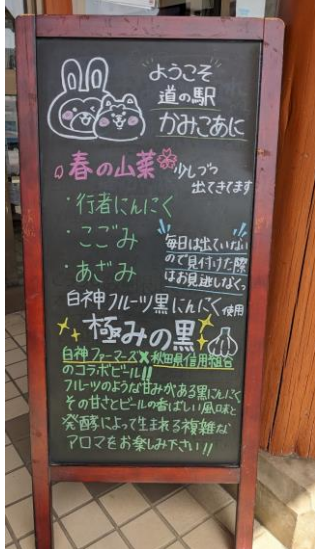 ようこそ
道の駅
かみこあに
春の山菜
少しづつ
出てきてます
・行者にんにく
・こごみ
・あざみ
毎日は出ていない
ので見付けた際
はお見逃しなくっ
白神フルーツ黒にんにく使用
極みの黒
白神ファーマーズ×秋田県信用組合
のコラボビール!!
フルーツのような甘みがある黒にんにく
その甘さとビールの香ばしい風味と
発酵によって生まれる複雑な
アロマをお楽しみ下さい!!